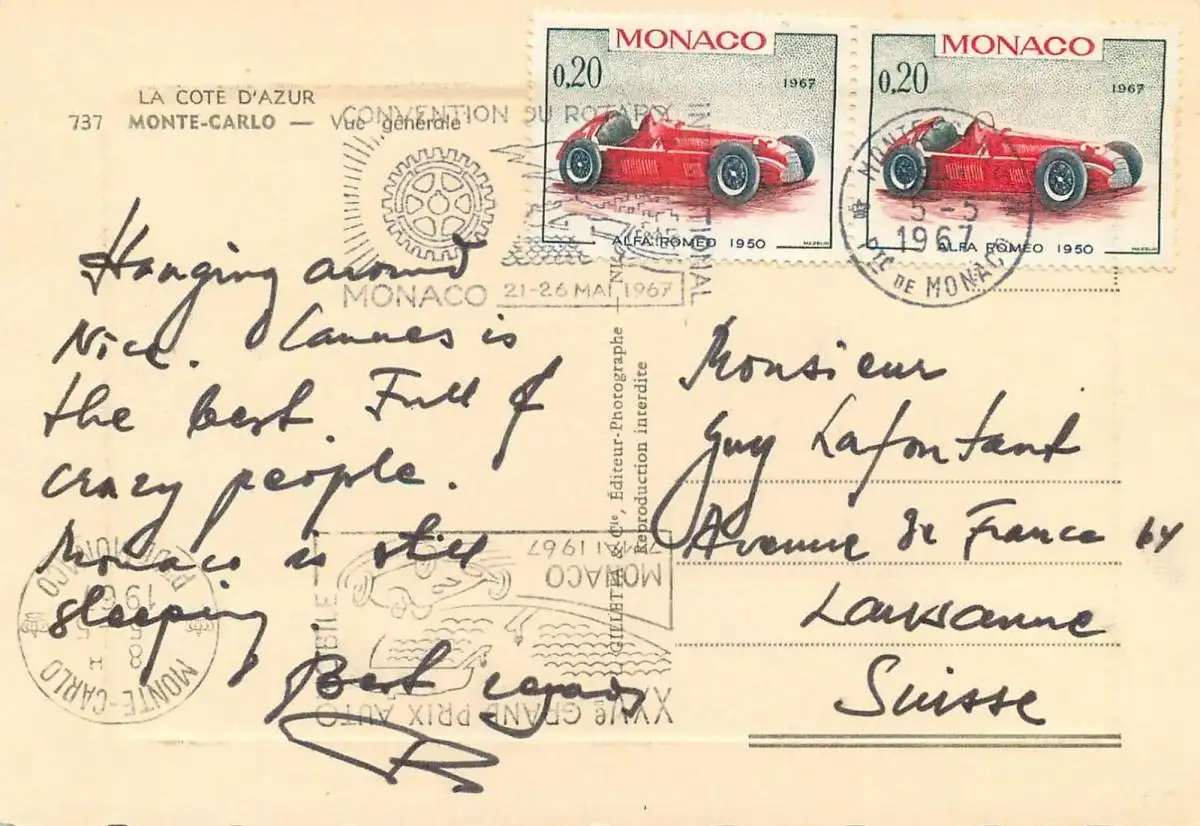 MONACO
0,20
1967
ALFA ROMEO 1950
MONACO
0,20
1967
ALFA ROMEO 1950
LA COTE D'AZUR
737 MONTE-CARLO — Vue générale
CONVENTION DU ROTARY
INTERNATIONAL
MONACO 21-26 MAI 1967
MONTE-CARLO
5-5
1967
PTÉ DE MONACO
Hanging around
Nice. Cannes is
the best. Full of
crazy people.
Monaco is still
sleeping
Best regards
GILLETTA & Cie, Éditeur-Photographe
Reproduction interdite
Monsieur
Guy Lafontant
Avenue de France 64
Lausanne
Suisse
XXVe GRAND PRIX AUTO
MONACO
7 MAI 1967
MONTE-CARLO
8 H
5-5
1967